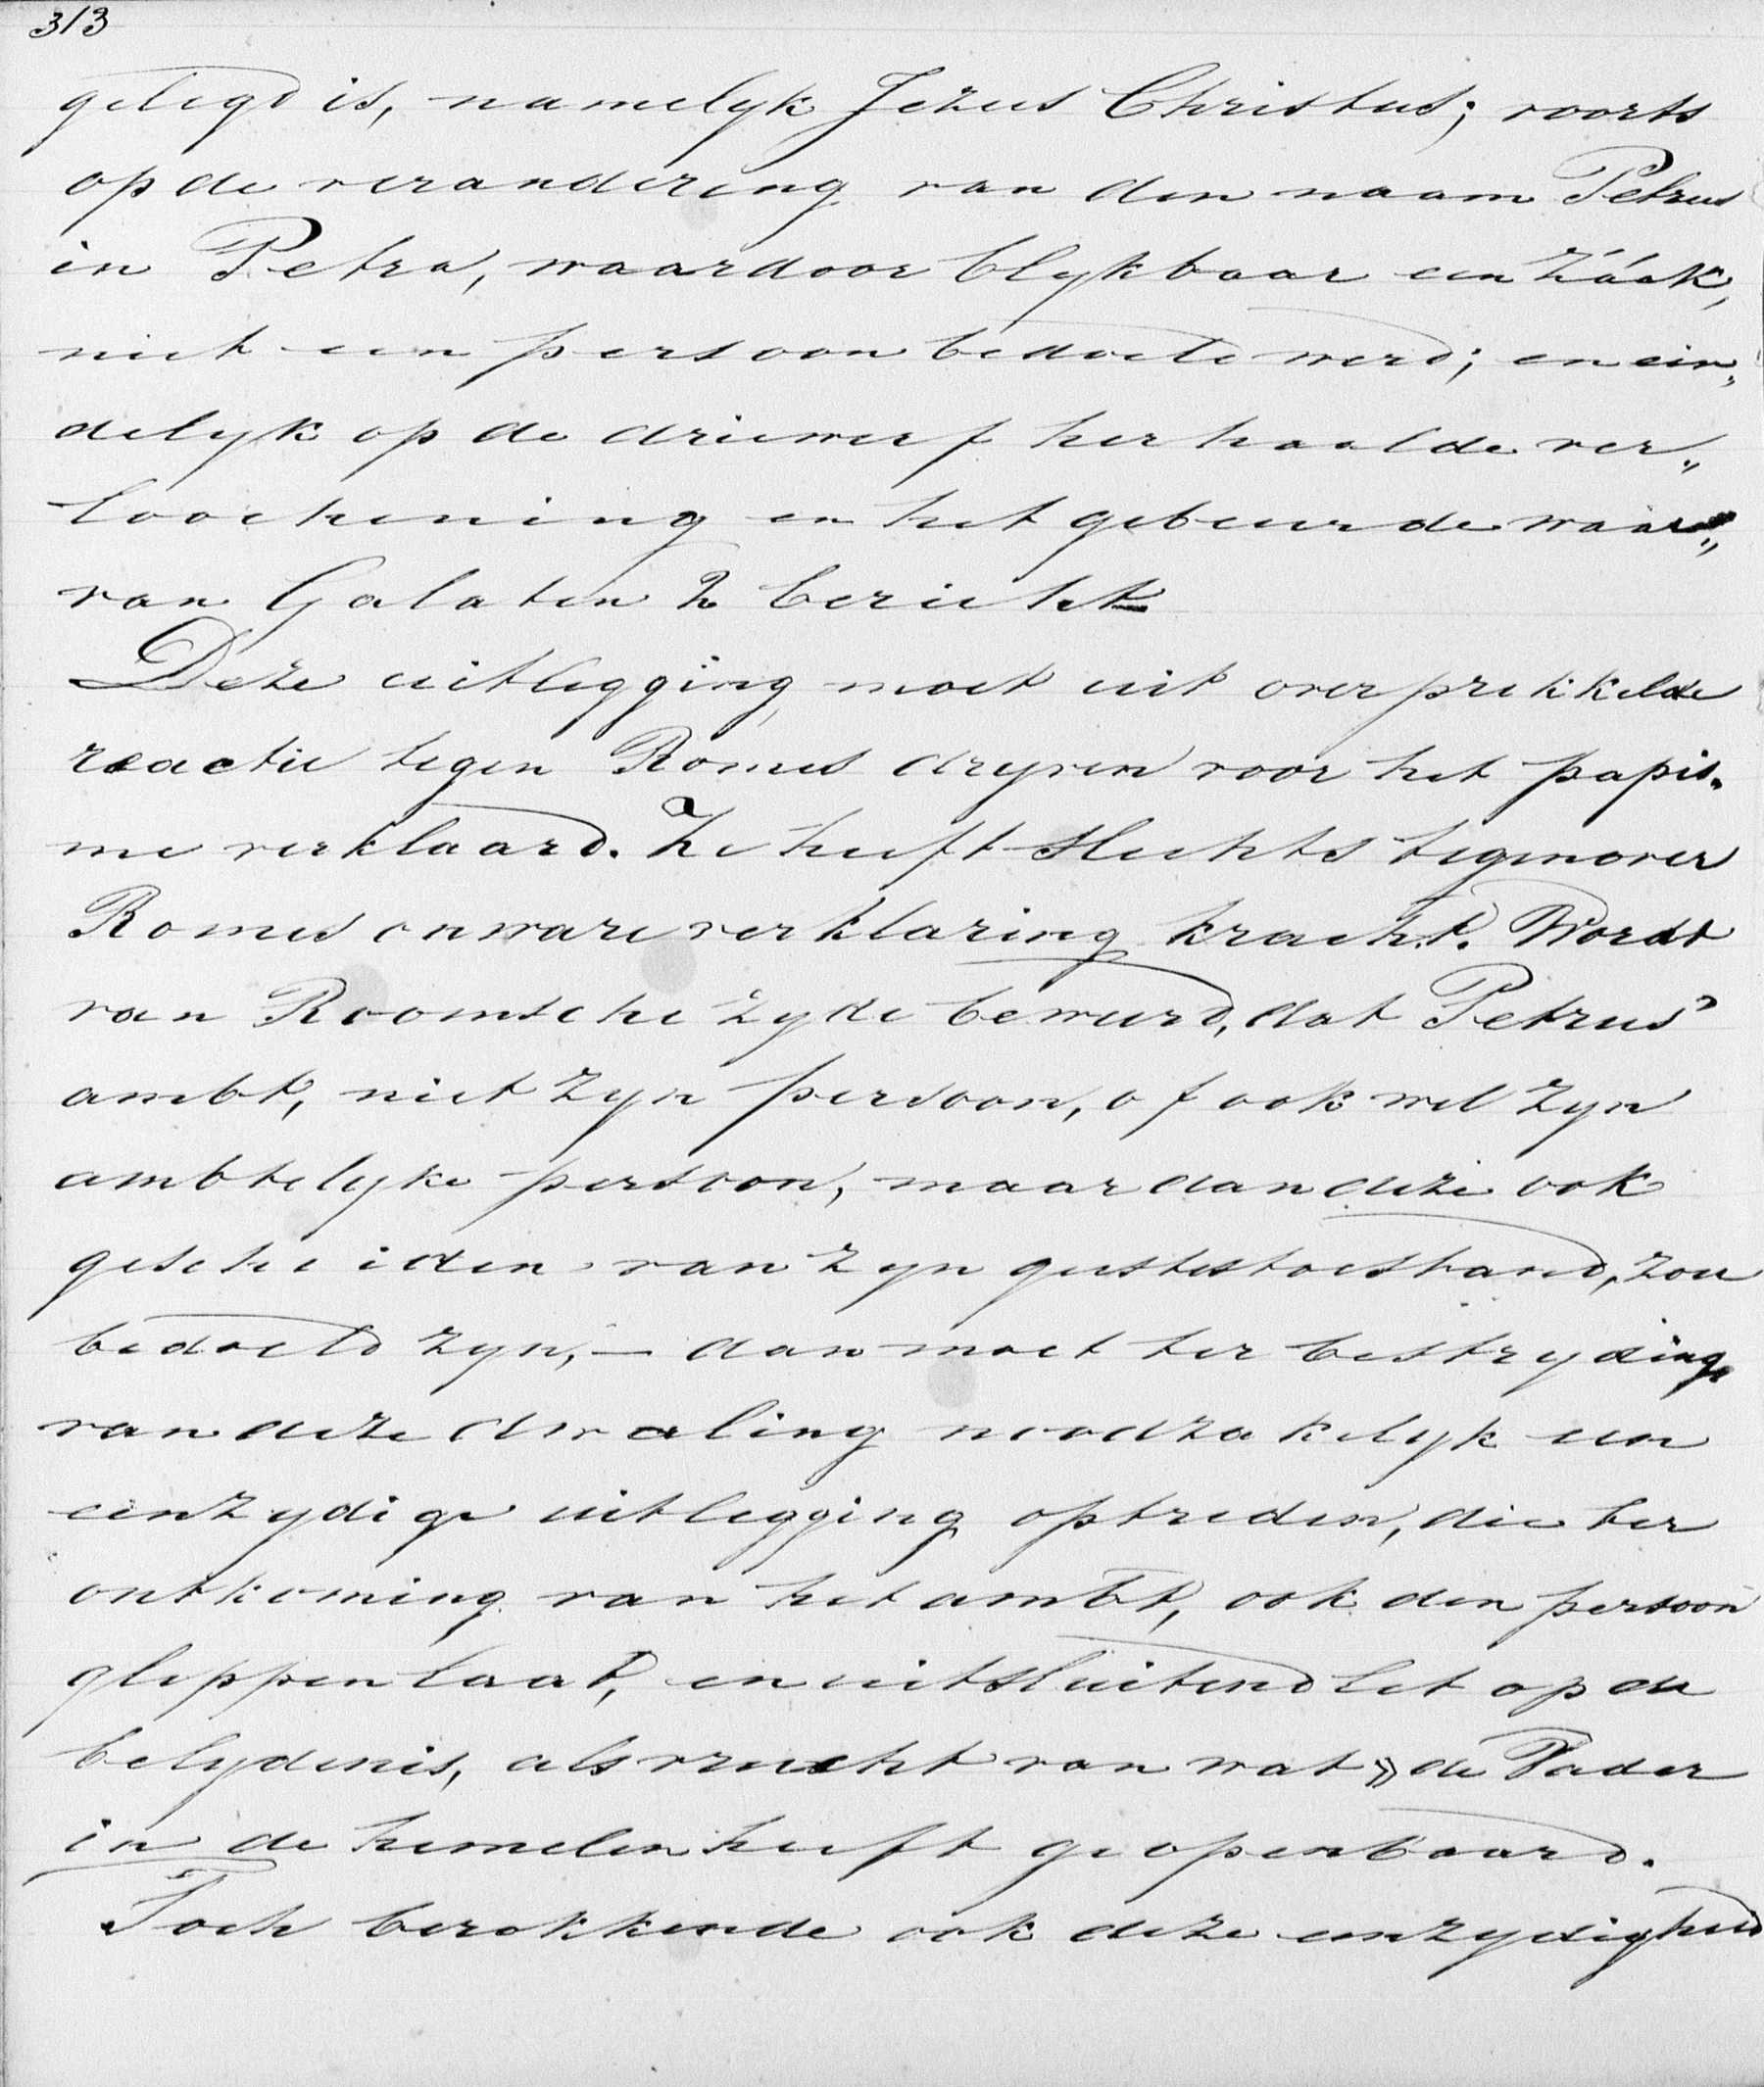 313
gelegd is, namelyk Jezus Christus; voorts
op de verandering van den naam Petrus
in Petra, waardoor blykbaar een záák,
niet een persoon bedoeld werd; en ein„
delyk op de driewerf herhaalde ver„
loochening en het gebeurde waar„
van Galaten 2 bericht
Deze uitlegging moet uit overprikkelde
reactie tegen Romes dryven voor het papis„
me verklaard. Ze heeft slechts tegenover
Romes onware verklaring kracht. Wordt
van Roomsche zyde beweerd, dat Petrus'
ambt, niet zyn persoon, of ook wel zyn
ambtelyke persoon, maar dan deze ook
gescheiden van zyn geestestoestand, zou
bedoeld zyn, — dan moet ter bestryding
van deze dwaling noodzakelyk een
eenzydige uitlegging optreden, die ter
ontkoming van het ambt, ook den persoon
glippen laat, en uitsluitend let op de
belydenis, als vrucht van wat » de Vader
in de hemelen heeft geopenbaard.
Toch berokkende ook deze eenzydigheid